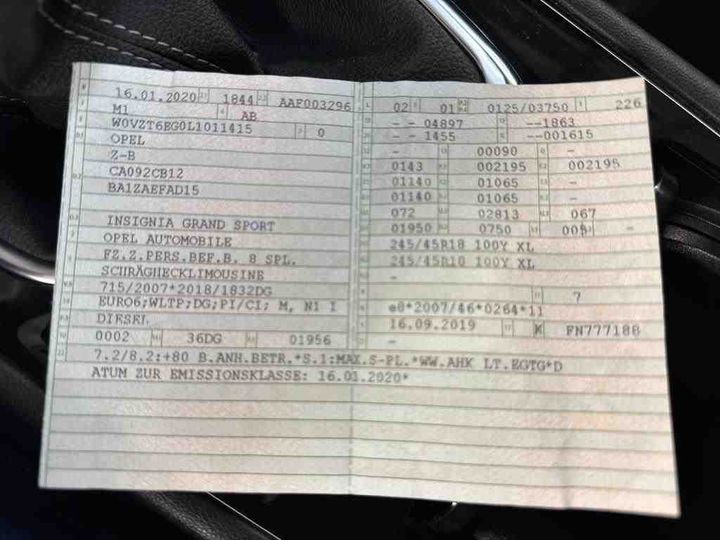 16.01.2020 1844 AAF003296
M1 AB
W0VZT6EG0L1011415 0
OPEL
Z-B
CA092CB12
BA1ZAEFAD15
INSIGNIA GRAND SPORT
OPEL AUTOMOBILE
FZ.Z.PERS.BEF.B. 8 SPL.
SCHRÄGHECKLIMOUSINE
715/2007*2018/1832DG
EURO6;WLTP;DG;PI/CI; M, N1 I
DIESEL
0002 36DG 01956
02 01 0125/03750 226
- - 04897 --1863
- - 1455 --001615
- 00090 -
0143 002195 002195
01140 01065 -
01140 01065 -
072 02813 067
01950 0750 -
245/45R18 100Y XL
245/45R18 100Y XL
-
- 7
e0*2007/46*0264*11
16.09.2019 K FN777188
-
7.2/8.2:+80 B.ANH.BETR.*S.1:MAX.S-PL.*WW.AHK LT.EGTG*D
ATUM ZUR EMISSIONSKLASSE: 16.01.2020*